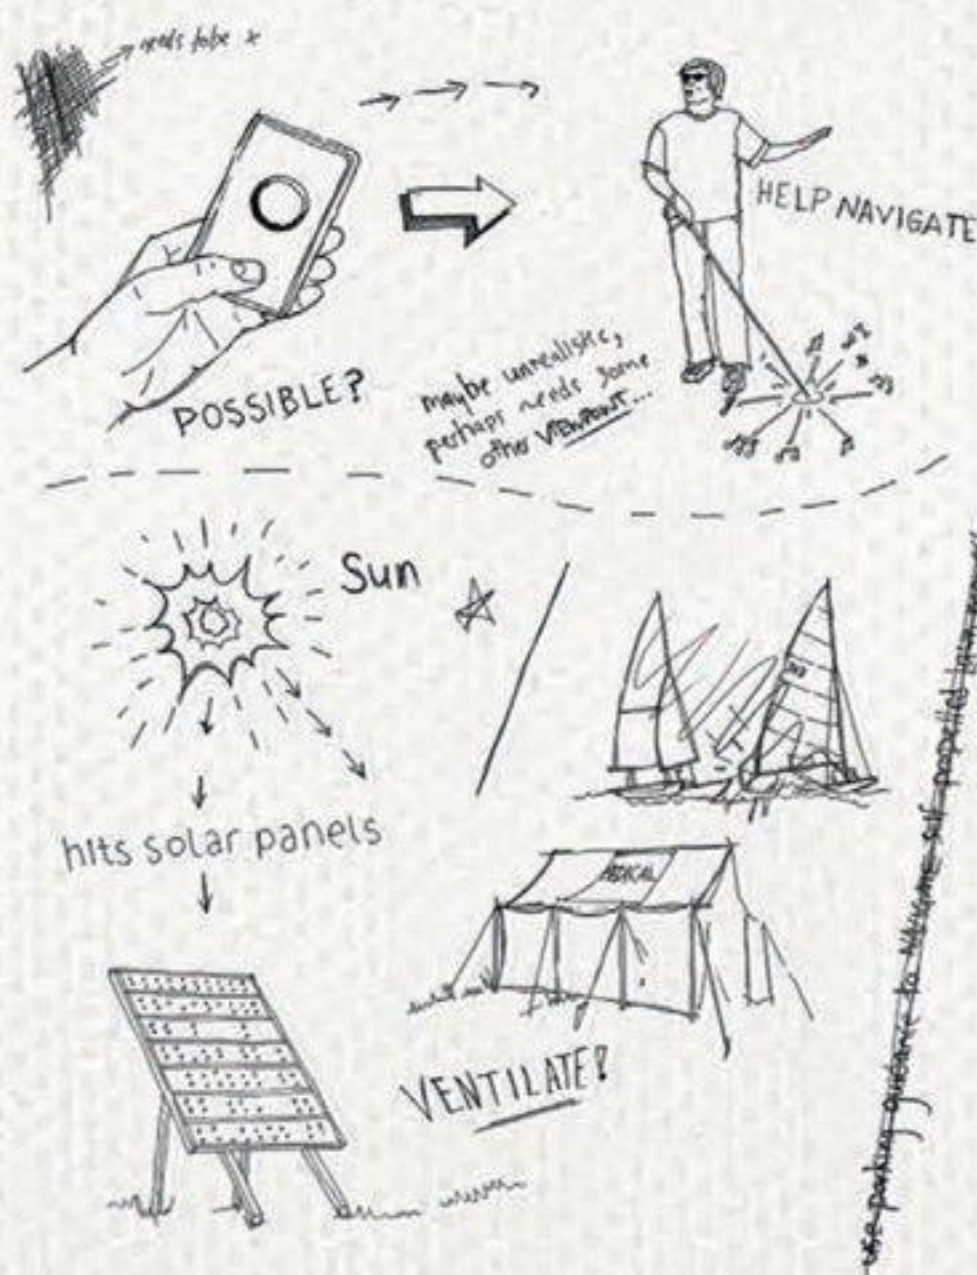 needs to be x
HELP NAVIGATE
POSSIBLE?
maybe unrealistic,
perhaps needs some
other VIEWPOINT...
Sun
hits solar panels
MEDICAL
VENTILATE!
use parking
to
self propelled